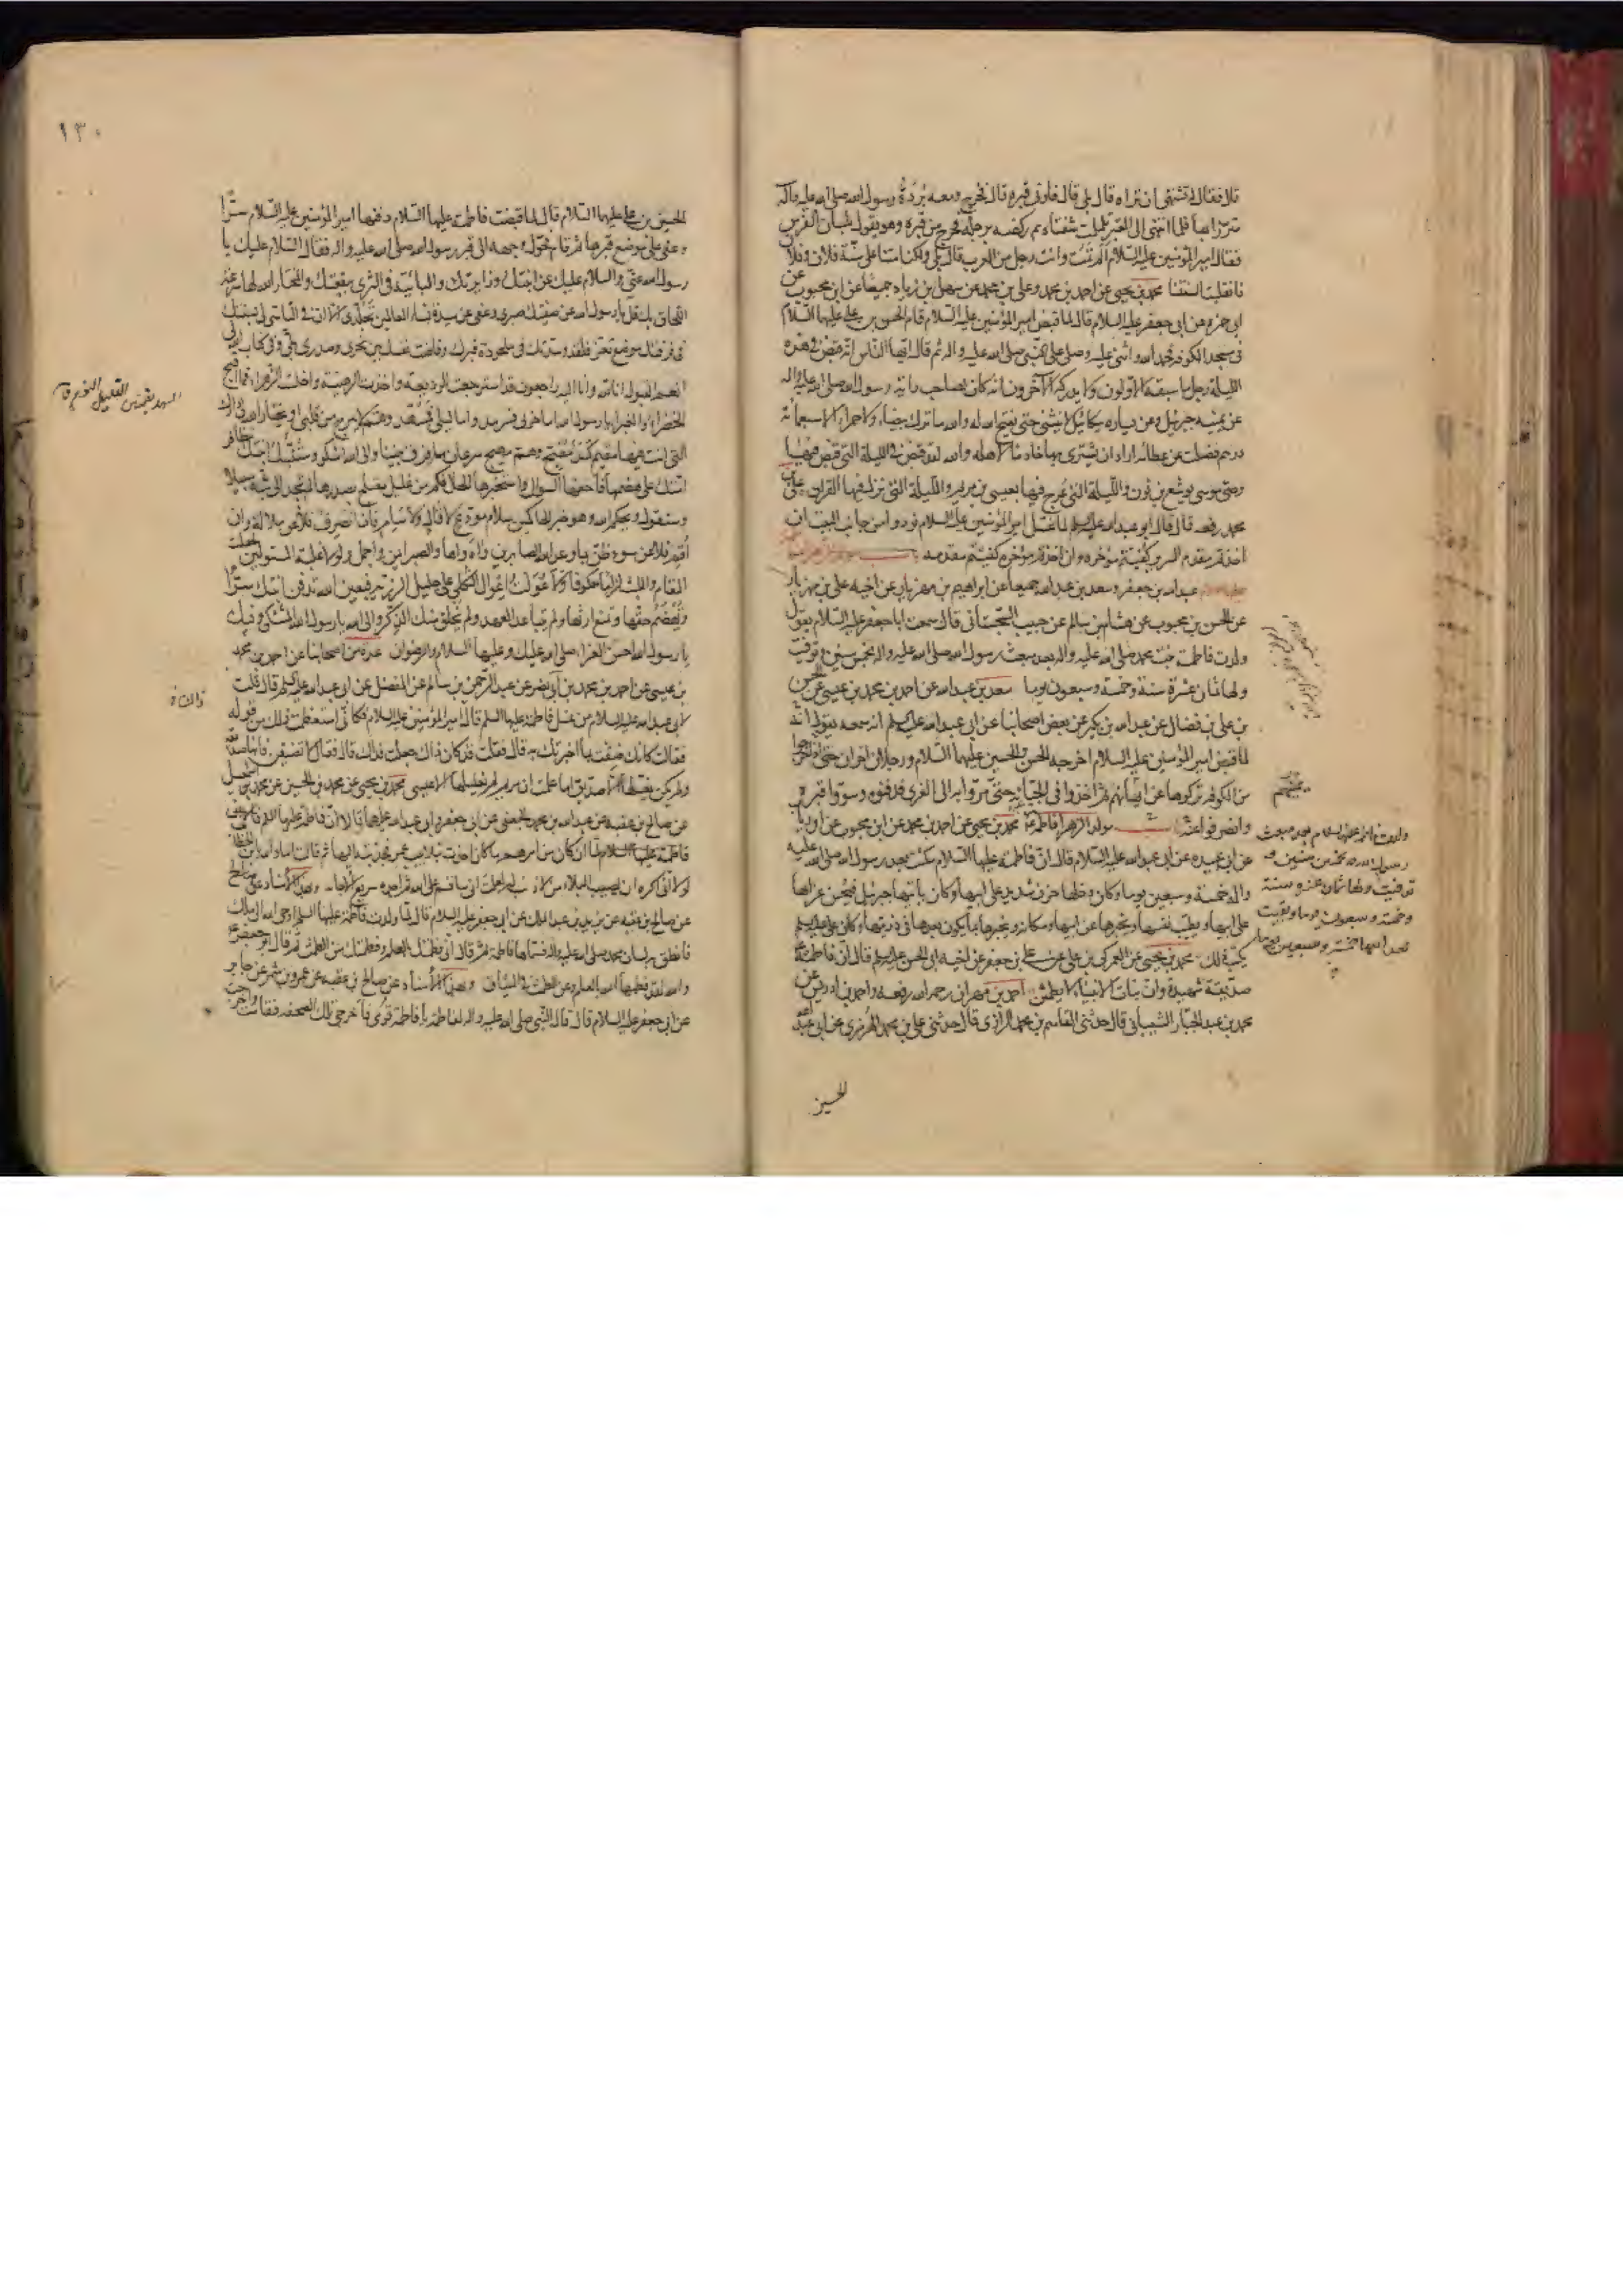 فلانا فقال له تشتهي ان تراه قال بلى قال فأرني قبره قال فخرج ومعه بردة رسول الله صلى الله عليه وآله
متزرا بها فلما انتهى الى القبر تململت شفتاه ثم ركضه برجله فخرج من قبره وهو يقول بلسان الفرس
فقال امير المؤمنين عليه السلام ألم تمت وانت رجل من العرب قال بلى ولكنا متنا على سنة فلان وفلان
فانقلبت السنتنا محمد بن يحيى عن احمد بن محمد وعلي بن محمد عن سهل بن زياد جميعا عن ابن محبوب عن
ابي حمزه عن ابي جعفر عليه السلام قال لما قبض امير المؤمنين عليه السلام قام الحسن بن علي عليهما السلام
في مسجد الكوفه فحمد الله واثنى عليه وصلى على النبي صلى الله عليه واله ثم قال ايها الناس انه قبض في هذه
الليلة رجل ما سبقه الاولون ولا يدركه الآخرون انه كان لصاحب راية رسول الله صلى الله عليه واله
عن يمينه جبرئيل وعن يساره ميكائيل لا ينثني حتى يفتح الله له والله ما ترك بيضاء ولا حمراء الا سبعمائة
درهم فضلت عن عطائه اراد ان يشتري بها خادما لاهله والله لقد قبض في الليلة التي قبض فيها
وصي موسى يوشع بن نون والليلة التي عرج فيها بعيسى بن مريم والليلة التي نزل فيها القرآن علي بن
محمد رفعه قال قال ابو عبد الله عليه السلم لما غسل امير المؤمنين عليه السلام نودوا من جانب البيت ان
اخذتم مقدم السرير كفيتم مؤخره وان اخذتم مؤخره كفيتم مقدمه
عبد الله بن جعفر وسعد بن عبد الله جميعا عن ابراهيم بن مهزيار عن اخيه علي بن مهزيار
عن الحسن بن محبوب عن هشام بن سالم عن حبيب السجستاني قال سمعت ابا جعفر عليه السلام يقول
ولدت فاطمة بنت محمد صلى الله عليه واله بعد مبعث رسول الله صلى الله عليه واله بخمس سنين وتوفيت
ولها ثمان عشرة سنة وخمسة وسبعون يوما سعد بن عبد الله عن احمد بن محمد بن عيسى عن الحسن
بن علي بن فضال عن عبد الله بن بكير عن بعض اصحابنا عن ابي عبد الله عليه السلم انه سمعه يقول انه
لما قبض امير المؤمنين عليه السلام اخرجه الحسن والحسين عليهما السلام ورجلان اخران حتى اذا خرجوا
من الكوفه تركوها عن ايمانهم ثم اخذوا في الجبانة حتى مروا به الى الغري فدفنوه وسووا قبره
وانصرفوا مولد الزهراء فاطمة محمد بن يحيى عن احمد بن محمد عن ابن محبوب عن ابن رئاب
عن ابي عبيده عن ابي عبد الله عليه السلام قال ان فاطمة عليها السلام مكثت بعد رسول الله صلى الله عليه
واله خمسة وسبعين يوما وكان دخلها حزن شديد على ابيها وكان يأتيها جبرئيل فيحسن عزاها
على ابيها ويطيب نفسها ويخبرها عن ابيها ومكانه ويخبرها بما يكون بعدها في ذريتها وكان علي عليه السلم
يكتب ذلك محمد بن يحيى عن العمركي بن علي عن علي بن جعفر عن اخيه ابي الحسن عليه السلم قال ان فاطمة
صديقة شهيدة وان بنات الانبياء لا يطمثن احمد بن مهران رحمه الله رفعه واحمد بن ادريس عن
محمد بن عبد الجبار الشيباني قال حدثني القاسم بن محمد الرازي قال حدثني علي بن محمد الهرمزي عن ابي عبد الله
ولدت فاطمة عليها السلام بعد مبعث
رسول الله بخمس سنين
توفيت ولها ثمان عشرة سنة
وخمسة وسبعون يوما وبقيت
بعد ابيها خمسة وسبعين يوما
الحسين
١٣٠
الحسين بن علي عليهما السلام قال لما قبضت فاطمة عليها السلام دفنها امير المؤمنين عليه السلام سرا
وعفى على موضع قبرها ثم قام فحول وجهه الى قبر رسول الله صلى الله عليه واله فقال السلام عليك يا
رسول الله عني والسلام عليك عن ابنتك وزايرتك والبائتة في الثرى ببقعتك والمختار الله لها سرعة
اللحاق بك قل يا رسول الله عن صفيتك صبري وعفى عن سيدة نساء العالمين تجلدي الا ان في التأسي لي بسنتك
في فرقتك موضع تعز فلقد وسدتك في ملحودة قبرك وفاضت نفسك بين نحري وصدري بلى وفي كتاب الله لي
انعم القبول انا لله وانا اليه راجعون قد استرجعت الوديعة واخذت الرهينة واخلست الزهراء فما اقبح
الخضراء والغبراء يا رسول الله اما حزني فسرمد واما ليلي فمسهد وهم لا يبرح من قلبي او يختار الله لي دارك
التي انت فيها مقيم كمد مقيح وهم مهيج سرعان ما فرق بيننا والى الله اشكو وستنبئك ابنتك بتظافر
امتك على هضمها فاحفها السؤال واستخبرها الحال فكم من غليل معتلج بصدرها لم تجد الى بثه سبيلا
وستقول ويحكم الله وهو خير الحاكمين سلام مودع لا قال ولا سئم فان انصرف فلا عن ملالة وان
اقم فلا عن سوء ظن بما وعد الله الصابرين واه واها والصبر ايمن واجمل ولولا غلبة المستولين لجعلت
المقام واللبث لزاما معكوفا ولاعولت اعوال الثكلى على جليل الرزية فبعين الله تدفن ابنتك سرا
وتهضم حقها وتمنع ارثها ولم يتباعد العهد ولم يخلق منك الذكر والى الله يا رسول الله المشتكى وفيك
يا رسول الله احسن العزاء صلى الله عليك وعليها السلام والرضوان عدة من اصحابنا عن احمد بن محمد
بن عيسى عن احمد بن محمد بن ابي نصر عن عبد الرحمن بن سالم عن المفضل عن ابي عبد الله عليه السلم قال قلت
لابي عبد الله عليه السلام من غسل فاطمة عليها السلم قال امير المؤمنين عليه السلام فكأني استعظمت ذلك من قوله
فقال كانك ضقت بما اخبرتك به قال فقلت قد كان ذاك جعلت فداك قال فقال لا تضيقن فانها صديقة
ولم يكن يغسلها الا صديق اما علمت ان مريم لم يغسلها الا عيسى محمد بن يحيى عن محمد بن الحسين عن محمد بن اسمعيل
عن صالح بن عقبه عن عبد الله بن محمد الجعفي عن ابي جعفر وابي عبد الله عليهما قالا ان فاطمة عليها السلم
فاطمة عليها السلام لما ان كان من امرهم ما كان اخذت بتلابيب عمر فجذبته اليها ثم قالت اما والله يا ابن الخطاب
لولا اني اكره ان يصيب البلاء من لا ذنب له لعلمت اني ساقسم على الله ثم اجده سريع الاجابة وبهذا الاسناد عن صالح
عن صالح بن عقبه عن يزيد بن عبد الملك عن ابي جعفر عليه السلام قال لما ولدت فاطمة عليها السلم اوحى الله الى ملك
فانطق به لسان محمد صلى الله عليه واله فسماها فاطمة ثم قال اني فطمتك بالعلم وفطمتك من الطمث ثم قال ابو جعفر ع
والله لقد فطمها الله بالعلم وعن الطمث في الميثاق وبهذا الاسناد عن صالح بن عقبه عن عمرو بن شمر عن جابر
عن ابي جعفر عليه السلام قال قال النبي صلى الله عليه واله لفاطمة يا فاطمة قومي فاخرجي تلك الصحفة فقامت فاخرجت